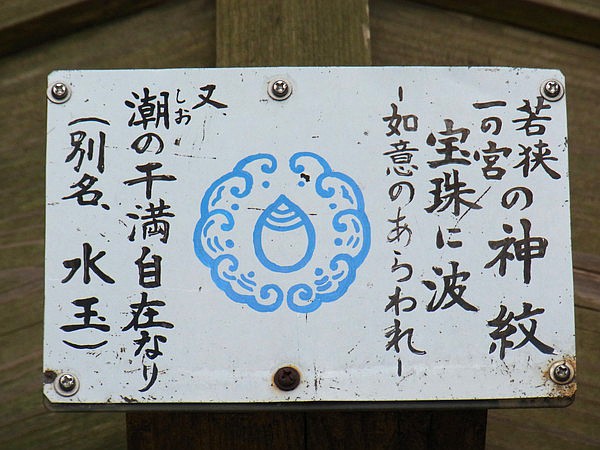 若狭
一の宮の神紋
宝珠に波
-如意のあらわれ-
又
潮の干満自在なり
しお
(別名、水玉)